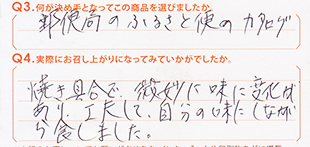 Q3.何が決め手となってこの商品を選びましたか。
郵便局のふるさと便のカタログ
Q4.実際にお召し上がりになってみていかがでしたか。
焼き具合で、微妙に味に変化が
あり、工夫して、自分の味にしなが
ら食しました。